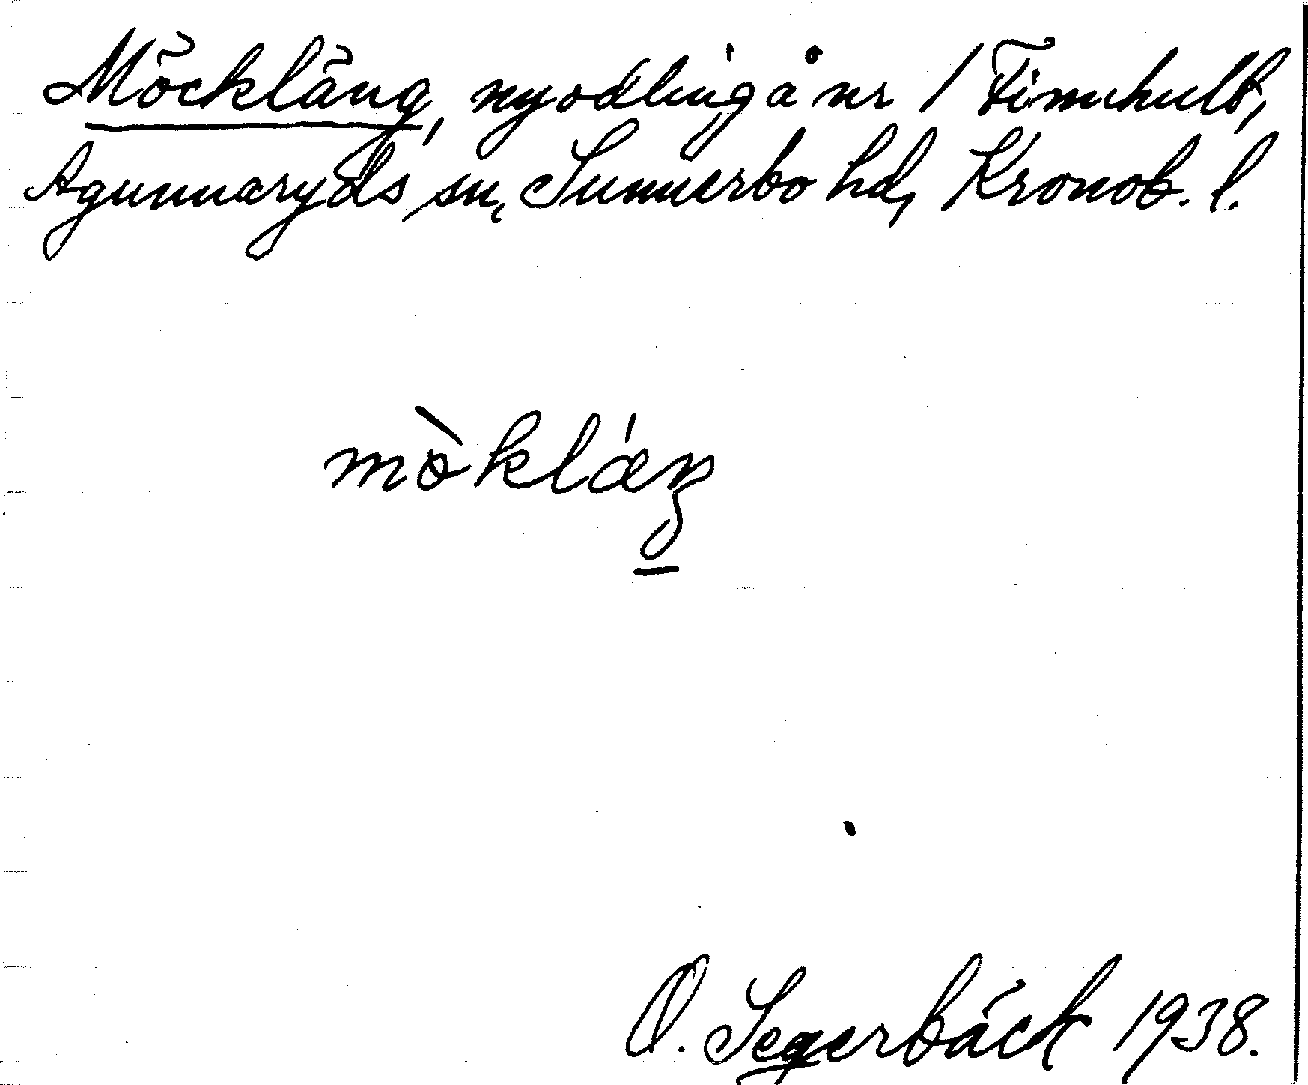 Möckläng, nyodling å nr 1 Finnhult,
Agunnaryds sn, Sunnerbo hd, Kronob. l.
mòklá̈ŋ
O. Segerbäck 1938.